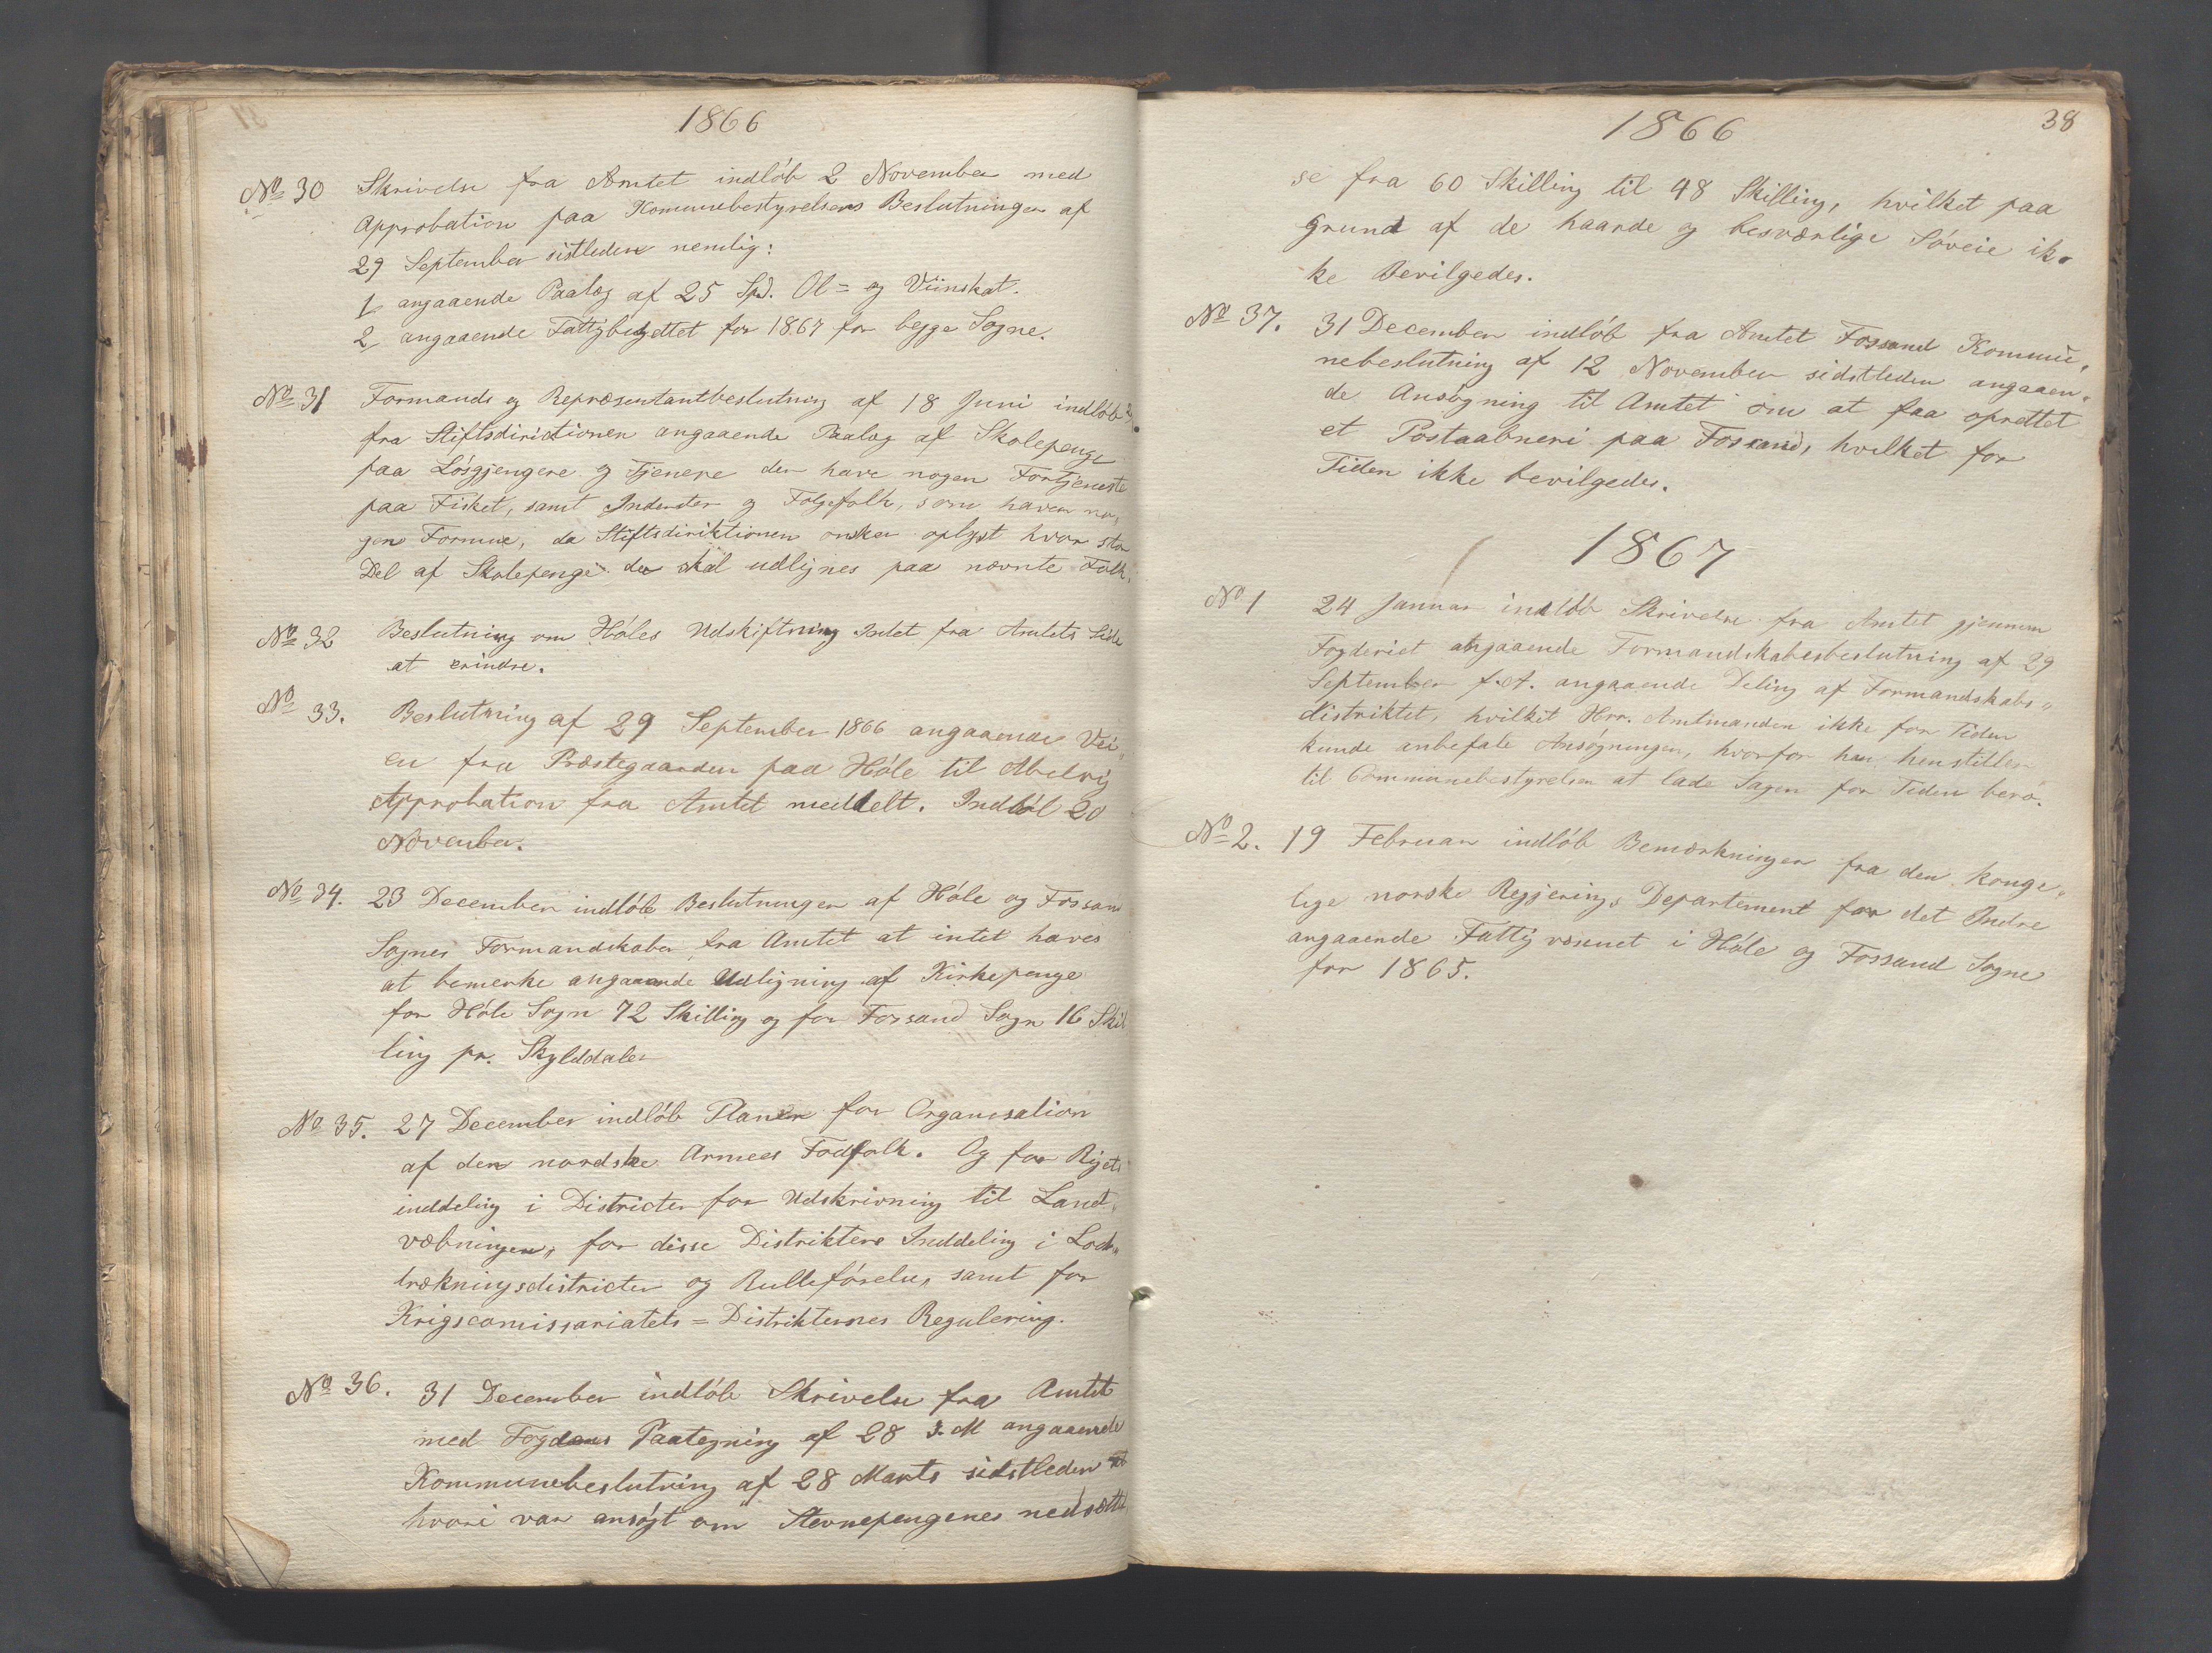 1866
No 30 Skrivelse fra Amtet indløb 2 November med
Approbation paa Kommunebestyrelsens Beslutninger af
29 September sistleden nemlig:
1, angaaende Paalæg af 25 Spd. Øl= og Viinskat.
2, angaaende Fattigbudgettet for 1867 for begge Sogne.
No 31 Formands og Repræsentantbeslutning af 18 Juni indløb
fra Stiftsdirictionen angaaende Paalæg af Skolepenge
paa Løsgjengere og Tjenere der have nogen Fortjeneste
paa Fisket, samt Inderster og Følgefolk, som haver no„
gen Formue, da Stiftsdiriktionen ønsker oplyst hvor stor
Del af Skolepenge der skal udlignes paa nævnte Folk.
No 32 Beslutning om Høles Udskiftning Intet fra Amtets Side
at erindre.
No 33. Beslutning af 29 September 1866 angaaende Vei„
en fra Præstegaarden paa Høle til Abelvig
Approbation fra Amtet meddelt. Indløb 20
November.
No 34. 23 December indløb Beslutninger af Høle og Fossand
Sognes Formandskaber fra Amtet at intet haves
at bemerke angaaende Udligning af Kirkepenge
for Høle Sogn 72 Skilling og for Forsand Sogn 16 Skil
ling pr. Skylddaler
No 35. 27 December indløb Planer for Organisation
af den nordske Armees Fodfolk. Og for Rigets
inddeling i Districter for Udskrivning til Land„
væbningen, for disse Distrikters Inddeling i Lod„
trækningsdistricter og Rulleførelse, samt for
Krigscomissariatets=Distrikternes Regulering.
No 36. 31 December indløb Skrivelse fra Amtet
med Fogdens Paategning af 28 s. M angaaende
Kommunebeslutning af 28 Marts sidstleden
hvori var ansøgt om Stevnepengenes nedsætt
1866
38
se fra 60 Skilling til 48 Skilling, hvilket paa
Grund af de haarde og besværlige Søveie ik„
ke Bevilgedes.
No 37. 31 December indløb fra Amtet Fossand Kommu„
nebeslutning af 12 November sidstleden angaaen„
de Ansøgning til Amtet om at faa oprettet
et Postaabneri paa Fossand, hvilket for
Tiden ikke bevilgedes.
1867
No 1 24 Januar indløb Skrivelse fra Amtet gjennem
Fogderiet angaaende Formandskabesbeslutning af 29
September f. A. angaaende Deling af Formandskabs„
distriktet, hvilket Hrr. Amtmanden ikke for Tiden
kunde anbefale Ansøgningen, hvorfor han henstiller
til Communebestyrelsen at lade Sagen for Tiden bero.
No 2. 19 Februar indløb Bemærkninger fra den konge„
lige norske Regjerings Departement for det Indre
angaaende Fattigvæsnet i Høle og Fossand Sogne
for 1865.